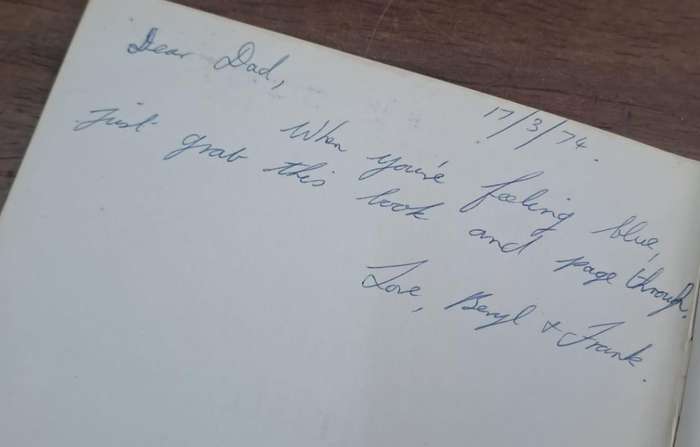 Dear Dad,
17/3/74.
When you're feeling blue,
just grab this book and page through.
Love, Beryl & Frank.